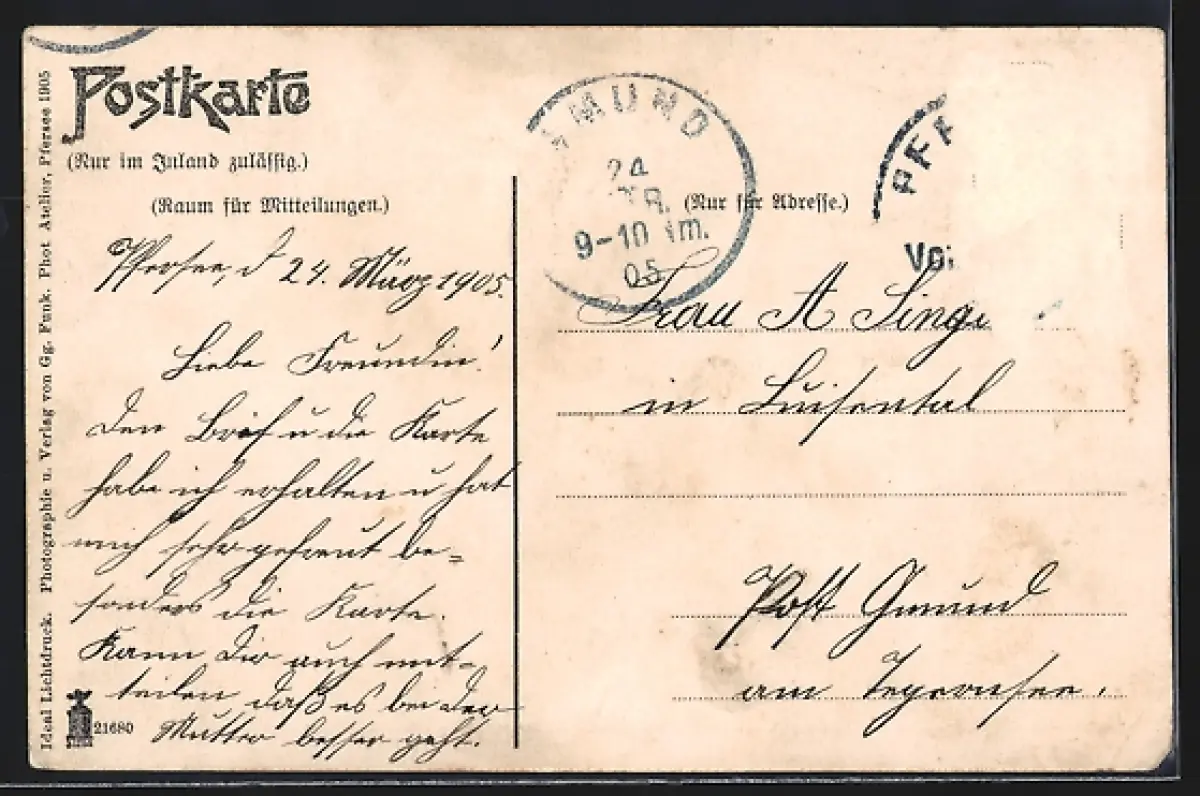 Postkarte
(Nur im Inland zulässig.)
(Raum für Mitteilungen.)
Pfersee, d 24. März 1905.
Liebe Freundin!
Den Brief u die Karte
habe ich erhalten u hat
mich sehr gefreut be=
sonders die Karte.
Kann Dir auch mit-
teilen daß es bei der
Mutter besser geht.
Ideal Lichtdruck. Photographie u. Verlag von Gg. Funk. Phot Atelier, Pfersee 1905
21680
MUND
24
9-10
05
(Nur für Adresse.)
PFA
Frau A
in Luisental
Post Gmund
am Tegernsee.